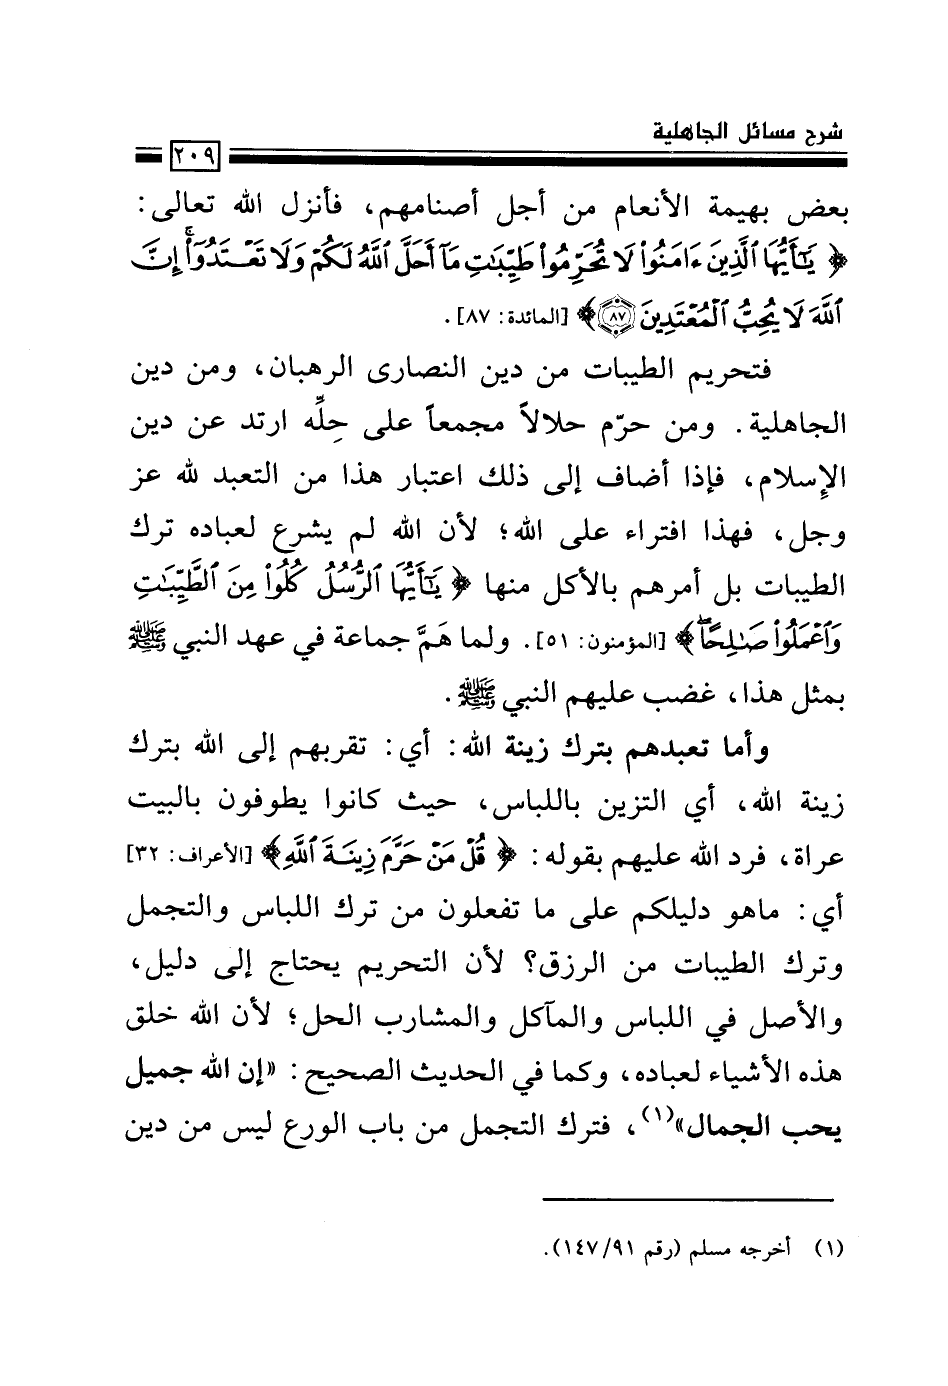 شرح مسائل الجاهلية
٢٠٩
بعض بهيمة الأنعام من أجل أصنامهم، فأنزل الله تعالى:
﴿ يَٰٓأَيُّهَا ٱلَّذِينَ ءَامَنُوا۟ لَا تُحَرِّمُوا۟ طَيِّبَٰتِ مَآ أَحَلَّ ٱللَّهُ لَكُمْ وَلَا تَعْتَدُوٓا۟ ۚ إِنَّ
ٱللَّهَ لَا يُحِبُّ ٱلْمُعْتَدِينَ ٨٧﴾ [المائدة: ٨٧].
فتحريم الطيبات من دين النصارى الرهبان، ومن دين
الجاهلية. ومن حرّم حلالاً مجمعاً على حِلِّه ارتد عن دين
الإسلام، فإذا أضاف إلى ذلك اعتبار هذا من التعبد لله عز
وجل، فهذا افتراء على الله؛ لأن الله لم يشرع لعباده ترك
الطيبات بل أمرهم بالأكل منها ﴿ يَٰٓأَيُّهَا ٱلرُّسُلُ كُلُوا۟ مِنَ ٱلطَّيِّبَٰتِ
وَٱعْمَلُوا۟ صَٰلِحًا ۖ﴾ [المؤمنون: ٥١]. ولما هَمَّ جماعة في عهد النبي ﷺ
بمثل هذا، غضب عليهم النبي ﷺ.
وأما تعبدهم بترك زينة الله: أي: تقربهم إلى الله بترك
زينة الله، أي التزين باللباس، حيث كانوا يطوفون بالبيت
عراة، فرد الله عليهم بقوله: ﴿ قُلْ مَنْ حَرَّمَ زِينَةَ ٱللَّهِ﴾ [الأعراف: ٣٢]
أي: ماهو دليلكم على ما تفعلون من ترك اللباس والتجمل
وترك الطيبات من الرزق؟ لأن التحريم يحتاج إلى دليل،
والأصل في اللباس والمآكل والمشارب الحل؛ لأن الله خلق
هذه الأشياء لعباده، وكما في الحديث الصحيح: «إن الله جميل
يحب الجمال»(١)، فترك التجمل من باب الورع ليس من دين
(١) أخرجه مسلم (رقم ١٤٧/٩١).